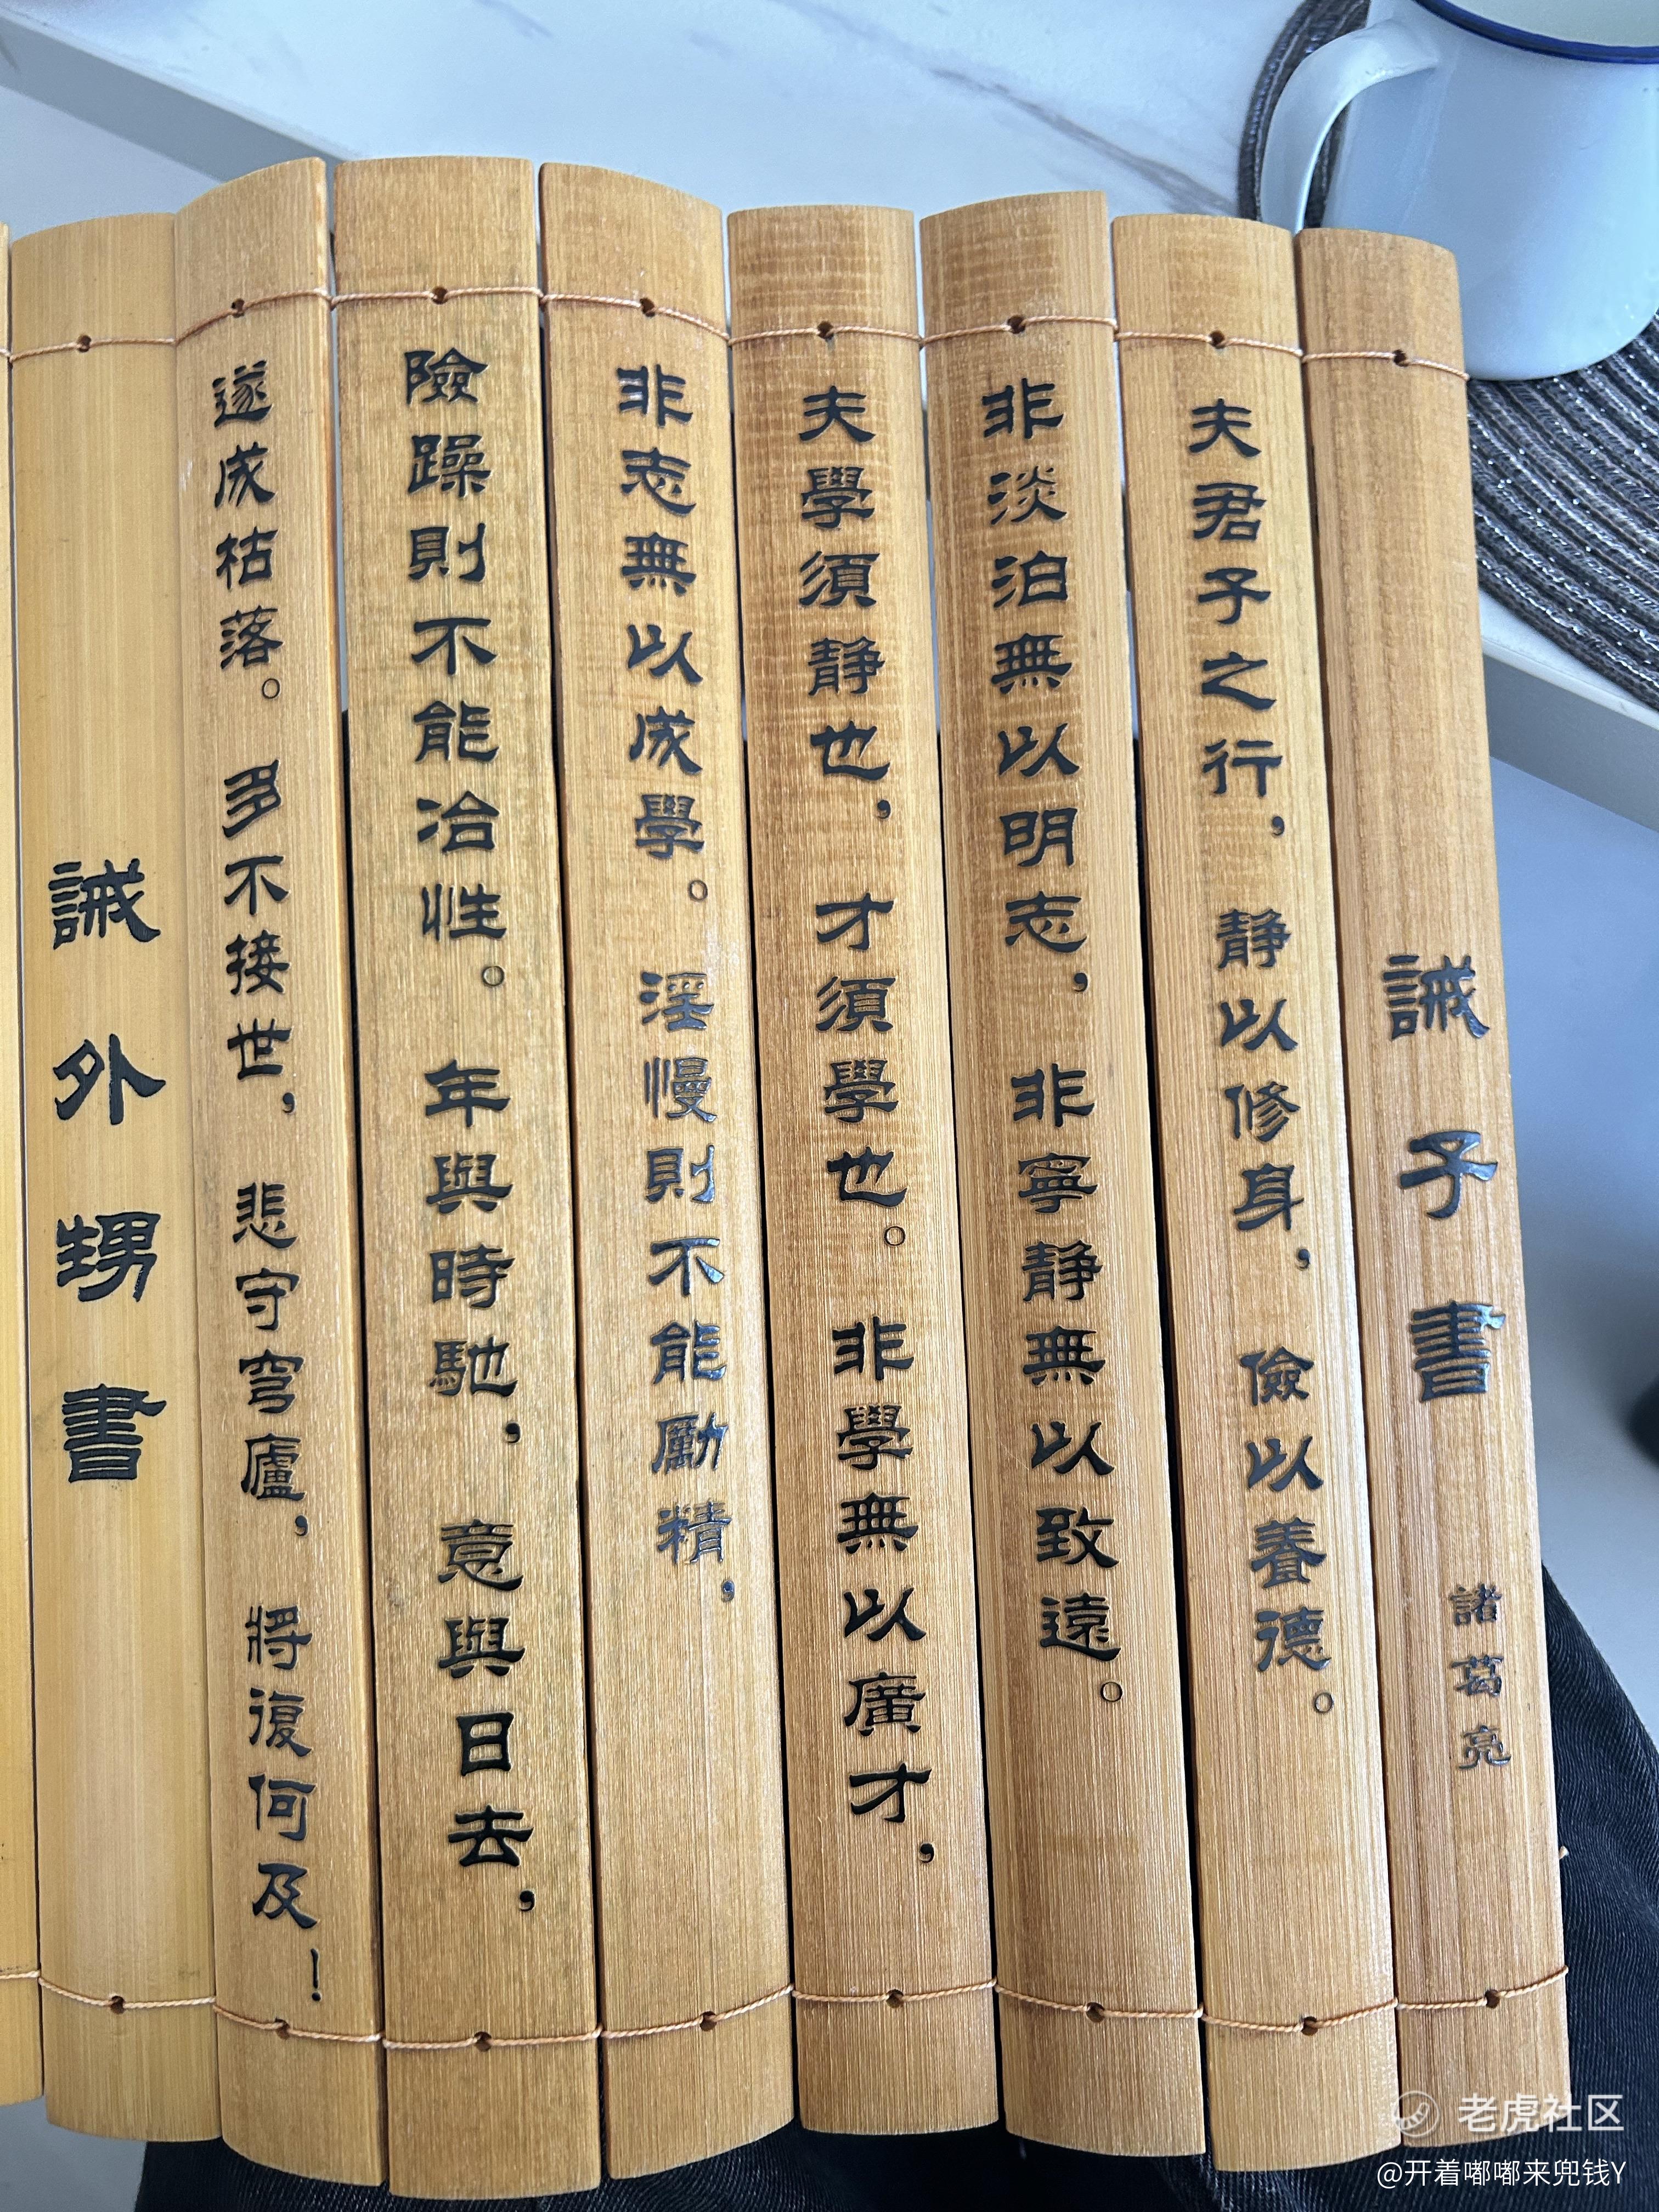 誡子書 諸葛亮
夫君子之行，靜以修身，儉以養德。
非淡泊無以明志，非寧靜無以致遠。
夫學須靜也，才須學也。非學無以廣才，
非志無以成學。淫慢則不能勵精，
險躁則不能冶性。年與時馳，意與日去，
遂成枯落。多不接世，悲守穹廬，將復何及！
誡外甥書
老虎社区
@开着嘟嘟来兜钱Y